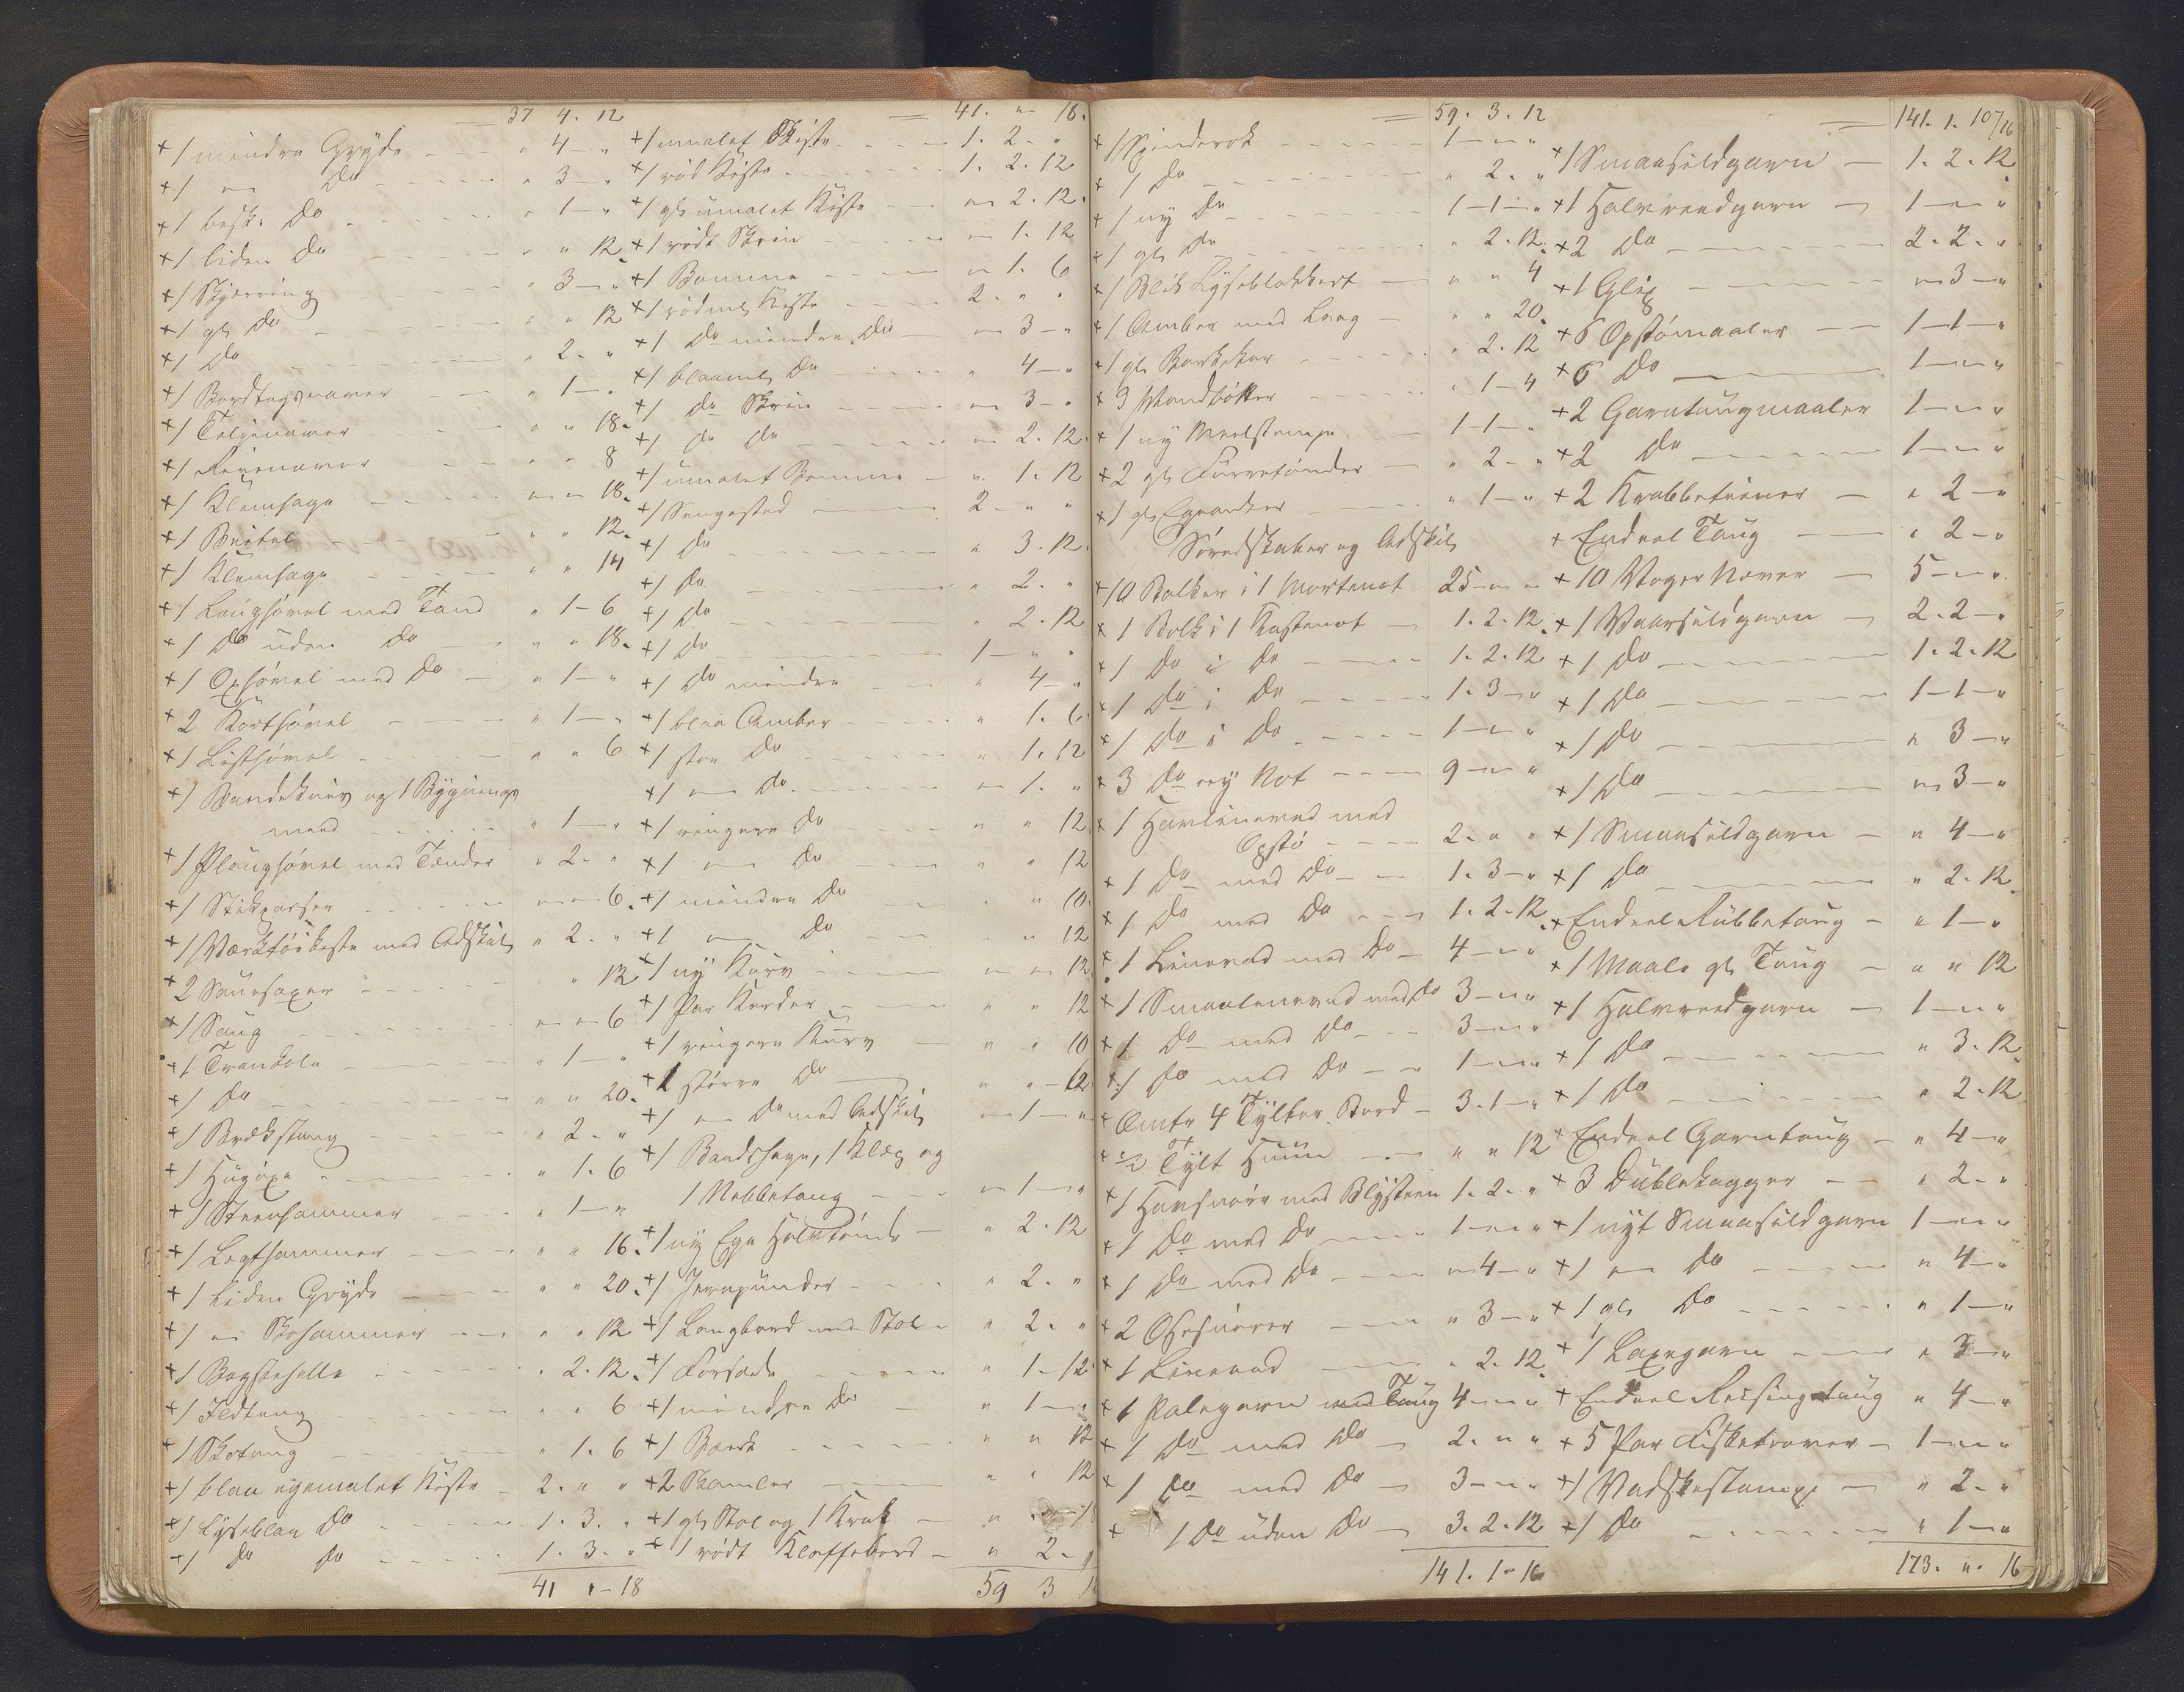 37 4. 12
+1 mindre Gryde - - - " 4 - "
+1 " Do - - - " 3 - "
+1 besk. Do - - - " 1 - "
+1 liden Do - - - " " 12
+1 Skjærring - - - " 3 - "
+1 gl. Do - - - " " 12
+1 Do - - - " 2. "
+1 Bordtagsnaver - - - " 1 - "
+1 Teljenaver - - - " " 18.
+1 - - - " " 8
+1 Klemsage - - - " " 18.
+1 Beitel - - - " " 12.
+1 Klemsage - - - " " 14
+1 Laughøvel med Tand " 1 - 6
+1 Do uden Do - " " 18.
+1 Oxhøvel med Do - " 1 - "
+2 Korthøvel - - - " 1 - "
+1 Listhøvel - - - " " 6
+1 Bandekniv og 1
- - - " 1 - "
+1 Ploughøvel med Tænder " 2. "
+1 Stikpasser - - - " " 6.
+1 Værktøikiste med Adskil. " 2. "
+2 Sauesaxer - - - " " 12
+1 Saug - - - " " 6
+1 Trankole - - - " 1 - "
+1 Do - - - " " 20.
+1 Brækstang - - - " 2. "
+1 Hugøxe - - - " 1. 6
+1 Steenhammer - - - " 1 - "
+1 Legthammer - - - " " 16.
+1 liden Gryde - - - " " 20.
+1 " Skohammer - - - " " 12
+1 Bagstehelle - - - " 2. 12.
+1 Ildtang - - - " " 6
+1 Skotang - - - " 1. 6
+1 blaa egemalet Kiste - 2. " "
+1 Lyseblaa Do - - - 1. 3. "
+1 Do Do - - - 1. 3. "
41 " - 18
41. " 18.
+1 umalet Kiste - - - 1. 2. "
+1 rød Kiste - - - 1. 2. 12
+1 gl. umalet Kiste - - - " 2. 12.
+1 rødt Skrin - - - " 1. 12
+1 Bomme - - - " 1. 6
+1 rødml. Kiste - - - 2. " "
+1 Do mindre Do - " 3 - "
+1 blaaml. Do - - - " 4 - "
+1 Do Skrin - - - " 3 - "
+1 do do - - - " 2. 12.
+1 umalet Bomme - " 1. 12
+1 Sengested - - - 2 - " "
+1 Do - - - " 3. 12.
+1 Do - - - " 2. "
+1 Do - - - " 2. 12
+1 Do - - - 1 - " "
+1 Do mindre - - - " 4 - "
+1 blaa Amber - - - " 1. 6.
+1 stor Do - - - " 1. 12
+1 " Do - - - " 1. "
+1 ringere Do - - - " " 12
+1 " Do - - - " " 12
+1 mindre Do - - - " " 10.
+1 " Do - - - " " 12
+1 ny Kurv - - - " " 12
+1 Par Karder - - - " " 12
+1 ringere Kurv - - - " " 10
+1 større Do - - - " " 12
+1 " Do med Adskil. " 1 - "
+1 Baandsage, 1 Klæg og
1 Nebbetang - - - " 1 - "
+1 ny Ege Halvtønde - " 2. 12
+1 Jernpunder - - - " 2. "
+1 Langbord med Stol - " 2. "
+1 Forsæde - - - " 1 - 12
+1 mindre Do - - - " 1 - "
+1 Bænk - - - " " 12
+2 Skamler - - - " " 12
+1 gl. Stol og 1 Krak - "
+1 rødt Klaffebord - " 2. "
59 3
59. 3. 12
+1 Spinderok - - - 1 - " "
+1 Do - - - " 2. "
+1 ny Do - - - 1 - 1 - "
+1 gl. Do - - - " 2. 12.
+1 Blik Lyseblokkert - " " 4
+1 Amber med Laag - " " 20.
+1 gl. Barkekar - - - " 2. 12
+3 Vandbøtter - - - " 1 - 4
+1 ny Meelstampe - 1 - 1 - "
+2 gl. Furretønder - " 2 - "
+1 gl. - - - " 1 - "
Søredskaber og Adskil.
+10 Bolker i 1 Mortenot 25 - " "
+1 Bolk i 1 Kastenot - 1. 2. 12.
+1 Do i Do - - - 1. 2. 12
+1 Do i Do - - - 1. 3 - "
+1 Do i Do - - - 1 - " "
+3 Do ny Not - - - 9 - " "
+1 Havlinevad med
Opstø - - - 2. " "
+1 Do med Do - - 1. 3 - "
+1 Do med Do - - 1. 2. 12.
+1 Linevad med Do - 4 - " "
+1 Smaalinevad med do 3 - " "
+1 Do med Do - - 3 - " "
+1 Do med Do - - 1 - " "
+ Omtr. 4 Tylter Bord - 3. 1 - "
+ 1/2 Tylt Huun - - " " 12
+1 Havsnøre med Blysteen 1. 2. "
+1 Do med Do - - - 1 - " "
+1 Do med Do - - - " 4 - "
+2 Ohrsnører - - - " 3 - "
+1 Linevad - - - " 2. 12.
+1 Palegarn med Taug 4 - " "
+1 Do med Do - 2. " "
+1 Do med Do - 3 - " "
+ 1 Do uden Do - 3. 2. 12
141. 1 - 16
141. 1. 10/16
+1 Smaasildgarn - 1. 2. 12.
+1 Halvreedgarn - 1 - " "
+2 Do - - - 2. 2. "
+1 Glip - - - " 3 - "
+6 Opstømaaler - - 1 - 1 - "
+6 Do - - - 1 - " "
+2 Garntaugmaaler 1 - " "
+2 Do - - - 1 - " "
+2 Krabbeteiner - " 2 - "
+ Endeel Taug - - " 2 - "
+10 Voger Næver - 5 - " "
+1 Vaarsildgarn - 2. 2 - "
+1 Do - - - 1. 2. 12
+1 Do - - - 1 - 1 - "
+1 Do - - - " 3 - "
+1 Do - - - " 3 - "
+1 Smaasildgarn - " 4 - "
+1 Do - - - " 2. 12.
+ Endeel Kubbetaug - " 1 - "
+1 Maale gl. Taug - " " 12
+1 Halvreedgarn - 1 - " "
+1 Do - - - " 3. 12.
+1 Do - - - " 2. 12
+ Endeel Garntaug - " 4 - "
+3 Dublekagger - - " 2 - "
+1 nyt Smaasildgarn 1 - " "
+1 " Do - - - " 4 - "
+1 gl. Do - - - " 1 - "
+1 Laxegarn - - - " 3 - "
+ Endeel Reisingtaug " 4 - "
+5 Par Fisketrover - 1 - " "
+1 Vadskestampe - " 2. "
+1 Do - - - " 1 - "
173. " . 16